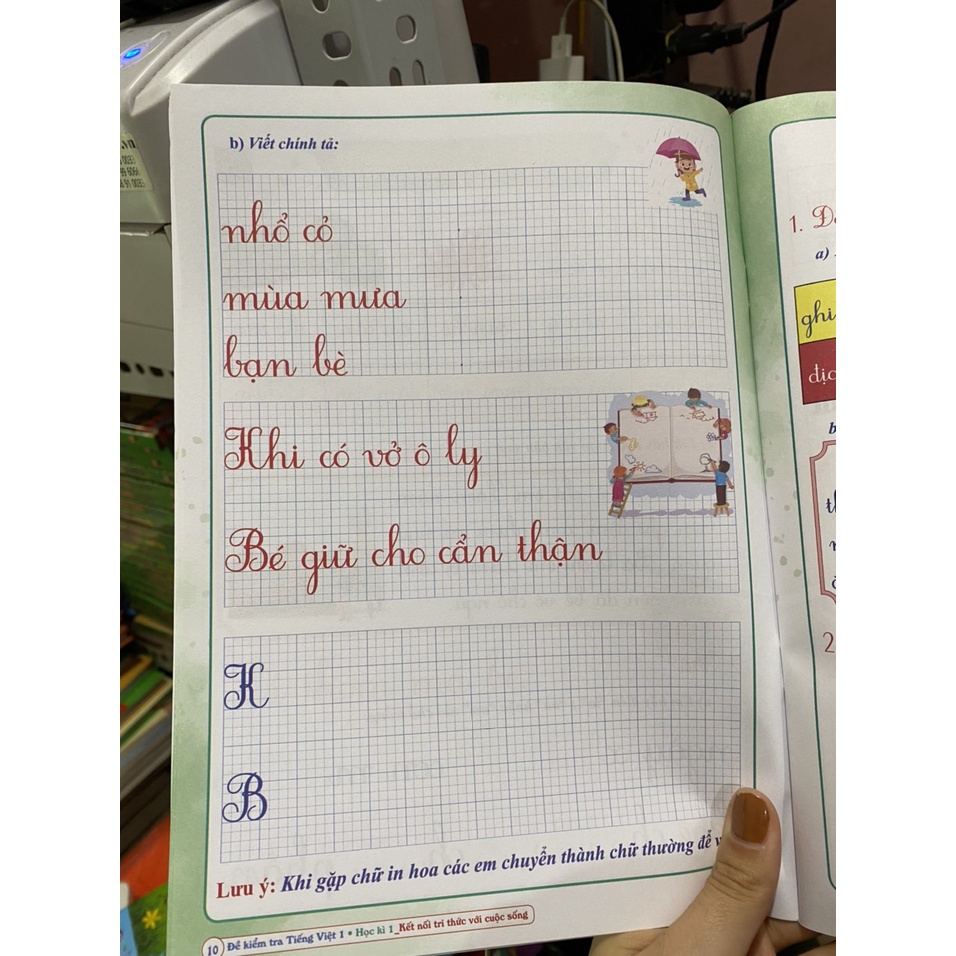 b) Viết chính tả:
nhổ cỏ
mùa mưa
bạn bè
Khi có vở ô ly
Bé giữ cho cẩn thận
K
B
Lưu ý: Khi gặp chữ in hoa các em chuyển thành chữ thường để
10 Đề kiểm tra Tiếng Việt 1 • Học kì 1_Kết nối tri thức với cuộc sống
1.
a)
ghi
b
2